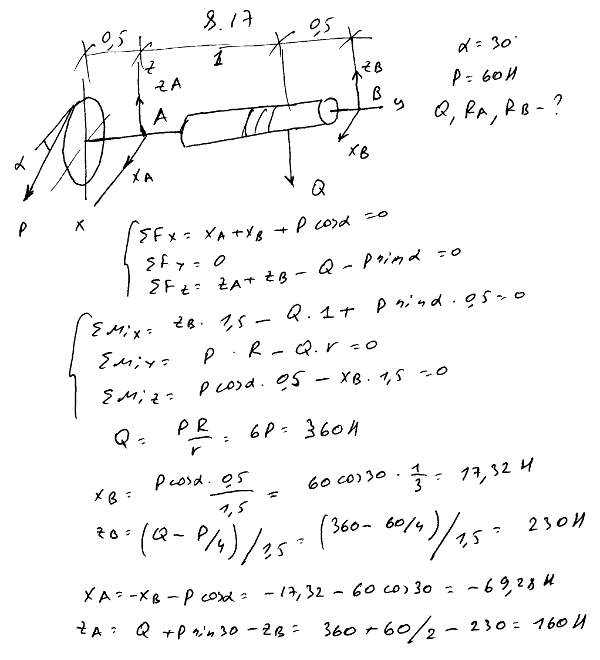 8.17
0,5 1 0,5
α = 30°
P = 60 Н
Q, RA, RB - ?
z
zA
zB
A
B
y
xA
xB
α
P
x
Q
ΣFx = xA + xB + P cosα = 0
ΣFy = 0
ΣFz = zA + zB - Q - P sinα = 0
ΣMix = zB · 1,5 - Q · 1 + P sinα · 0,5 = 0
ΣMiy = P · R - Q · r = 0
ΣMiz = P cosα · 0,5 - xB · 1,5 = 0
Q = PR/r = 6P = 360 Н
xB = P cosα · 0,5/1,5 = 60 cos30 · 1/3 = 17,32 Н
zB = (Q - P/4)/1,5 = (360 - 60/4)/1,5 = 230 Н
xA = -xB - P cosα = -17,32 - 60 cos30 = -69,28 Н
zA = Q + P sin30 - zB = 360 + 60/2 - 230 = 160 Н